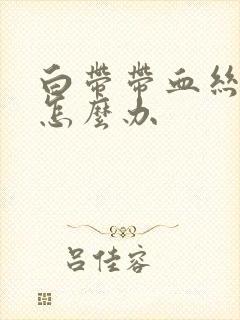 白帶帶血絲
怎麼办
吕佳容